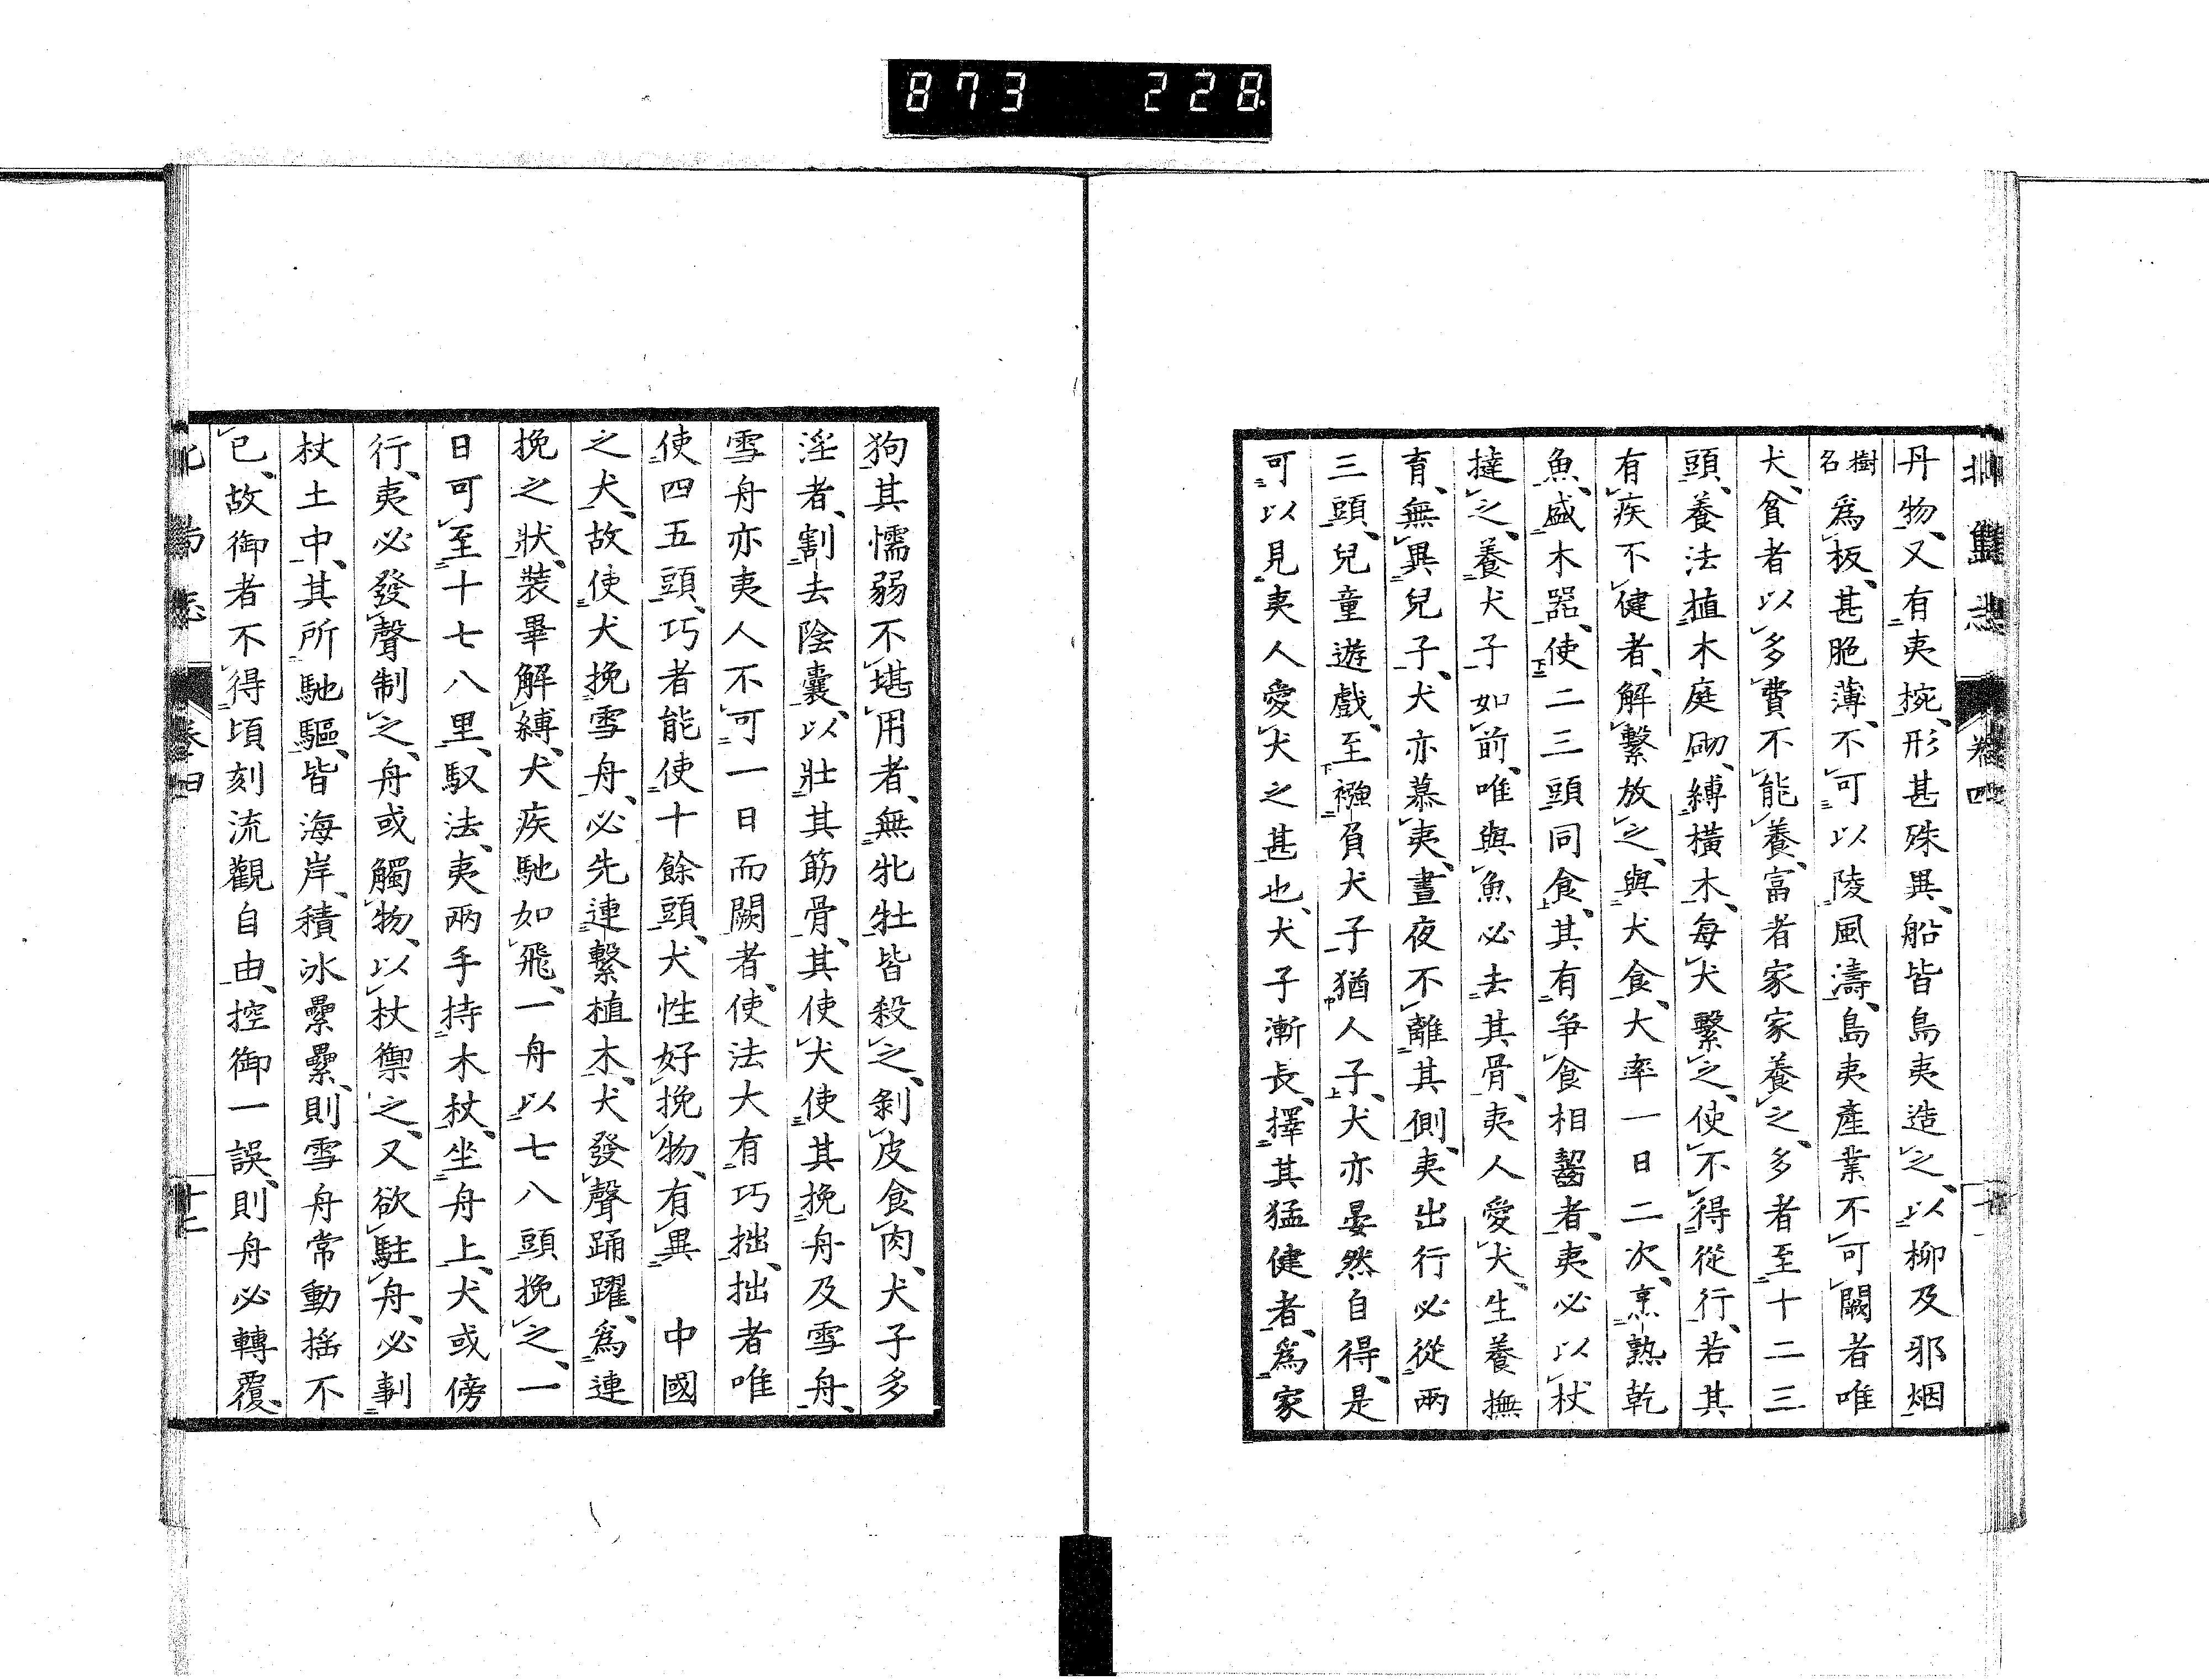 873 228
丹物、又有夷椀、形甚殊異、船皆島夷造之、以柳及邪烟
樹名爲板、甚脆薄、不可以陵風濤、島夷產業不可闕者唯
犬、貧者以多費不能養、富者家家養之、多者至十二三
頭、養法植木庭砌、縛橫木、每犬繫之、使不得從行、若其
有疾不健者、解繫放之、與犬食、大率一日二次、烹熟乾
魚、盛木器、使二三頭同食、其有爭食相齧者、夷必以杖
撻之、養犬子如前、唯與魚必去其骨、夷人愛犬、生養撫
育、無異兒子、犬亦慕夷、晝夜不離其側、夷出行必從兩
三頭、兒童遊戲、至襁負犬子猶人子、犬亦晏然自得、是
可以見夷人愛犬之甚也、犬子漸長、擇其猛健者、爲家
狗其懦弱不堪用者、無牝牡皆殺之、剝皮食肉、犬子多
淫者、割去陰囊、以壯其筋骨、其使犬使其挽舟及雪舟、
雪舟亦夷人不可一日而闕者、使法大有巧拙、拙者唯
使四五頭、巧者能使十餘頭、犬性好挽物、有異 中國
之犬、故使犬挽雪舟、必先連繫植木、犬發聲踊躍、爲連
挽之狀、裝畢解縛、犬疾馳如飛、一舟以七八頭挽之、一
日可至十七八里、馭法、夷兩手持木杖、坐舟上、犬或傍
行、夷必發聲制之、舟或觸物、以杖禦之、又欲駐舟、必剚
杖土中、其所馳驅、皆海岸、積冰纍纍、則雪舟常動搖不
已、故御者不得頃刻流觀自由、控御一誤、則舟必轉覆、
卷四
十七